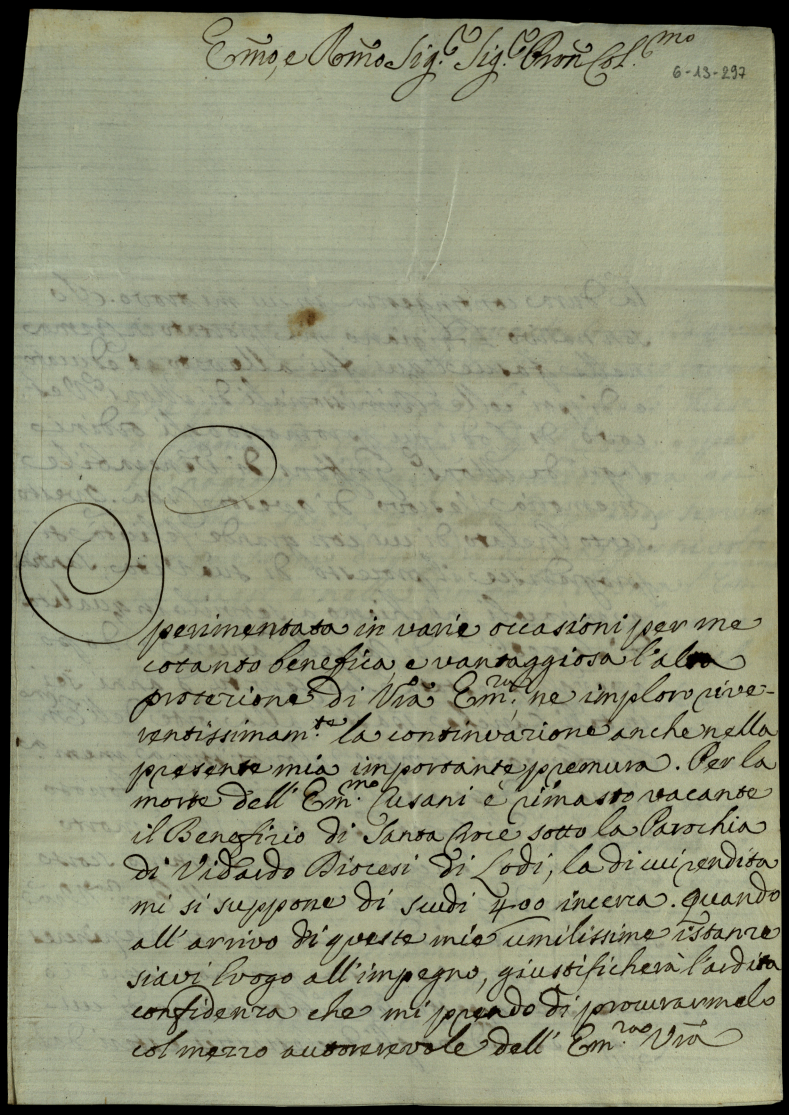 Em̃o, e Rm̃o Sig.r Sig.r Pron̄ Col.mo
6-13-297
Sperimentata in varie occasioni per me
cotanto benefica, e vantaggiosa l'alta
protezione di Vr̃a Em.za, ne imploro rive-
rentissimam.te la continuazione anche nella
presente mia importante premura. Per la
morte dell' Em.mo Cusani è rimasto vacante
il Benefizio di Santa Croce sotto la Parochia
di Vidardo Diocesi di Lodi, la di cui rendita
mi si suppone di scudi 400 incerca. Quando
all' arrivo di queste mie umilissime istanze
siavi luogo all' impegno, giustificherà l'ardita
confidenza che mi prendo di procurarmelo
col mezzo autorevole dell' Em.za Vr̃a